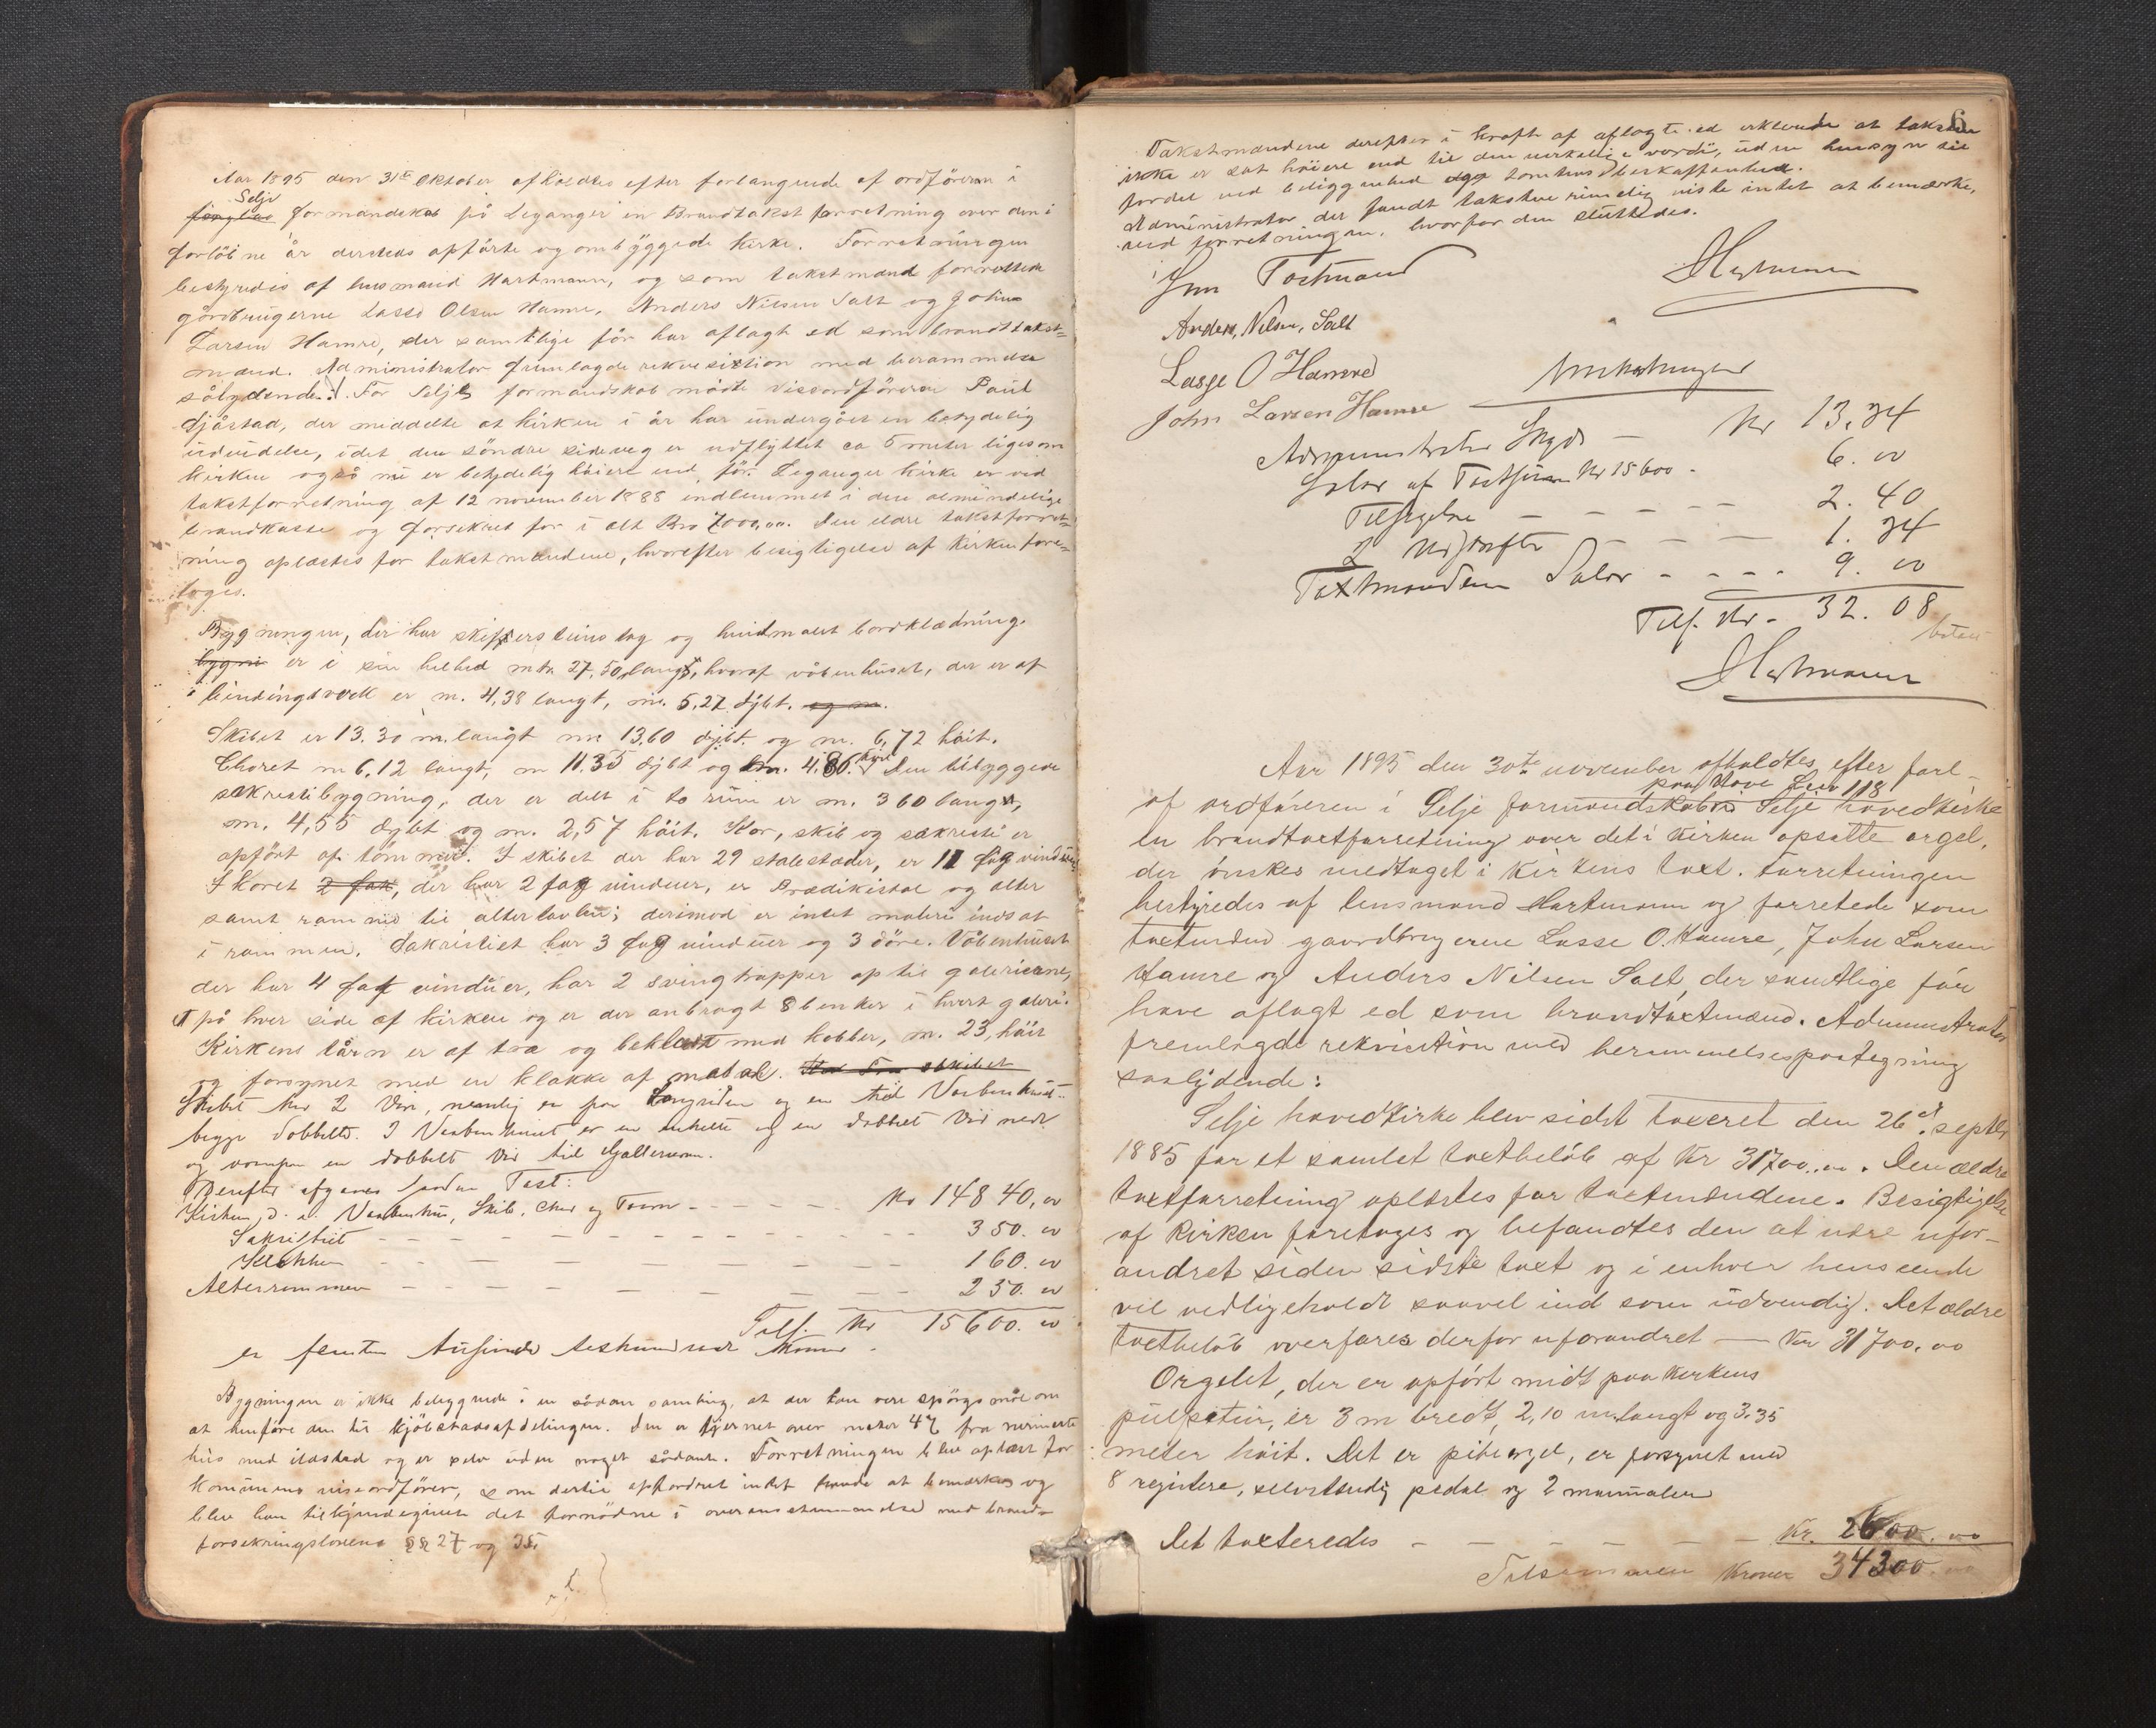 Aar 1895 den 31te Oktober afholdes efter forlangende af ordföreren i
Selje
formandskab på Leganger en Brandtakst forretning over den i
forløbne år dersteds opförte og ombyggede kirke. Forretningen
bestyredes af lensmand Hartmann, og som takstmænd forrettede
gårdbrugerne Lasse Olsen Hamre, Anders Nilsen Salt og John
Larsen Hamre, der samtlige för har aflagt ed som brandtakst-
mænd. Administrator fremlagde rekvisition med berammelse
sålydende: For Selje formandskab mödte viseordföreren Paul
der meddelte at kirken i år har undergået en betydelig
udvidelse, idet den söndre sideveg er udflyttet ca 5 meter ligesom
kirken også nu er betydelig höiere end för. Leganger kirke er ved
takstforretning af 12 november 1888 indlemmet i den almindelige
brandkasse og forsikret for i alt Kro 7000,00. Den eldre takstforret-
ning oplæstes for takstmændene, hvorefter besigtigelse af kirken fore-
toges.
Bygningen, der har skiffersteinstag og hvidmalet bordklædning
bygni er i sin helhed mtr. 27,50 langt, hvoraf våbenhuset, der er af
bindingsværk er m. 4,38 langt, m. 5,27 dybt. og m.
Skibet er 13.30 m. langt m 13,60 dybt og m. 6,72 höit.
Choret m 6,12 langt, m 11.35 dybt og m. 4,86. höit Den tilbyggede
sakrestibygning, der er delt i to rum er m. 360 langt,
m. 4,55 dybt og m. 2,57 höit. Kor, skib og sakresti er
opfört af tömmer. I skibet der har 29 stolestader, er 11 fag vinduer
I koret 2 fak, der har 2 fag vinduer, er Prædikestol og alter
samt ramme til altertavlen; derimod er intet maleri indsat
i rammen. Sakristiet har 3 fag vinduer og 3 döre. Våbenhuset
der har 4 fag vinduer, har 2 svingtrapper op til galerierne,
et på hver side af kirken og er der anbragt 8 benker i hvert galeri.
Kirkens tårn er af træ og beklædt med kobber, m. 23, höit
og forsynet med en klokke af metal.
Skibet har 2 Döre, nemlig en paa Langsiden og en til Vaabenhuset
begge dobbelte. I Vaabenhuset er en enkelte og en dobbelt Dör nede
og oventil en dobbelt Dör til Gallerierne.
Derefter afgaves saadan Taxt:
Kirken, d. e. Vaabenhus, Skib, Chor og Taarn - - - - Kr 14840,00
Sakristiet - - - - - - - 350.00
Klokken - - - - - - 160.00
Alterrammen - - - - - - 250.00
Tils. Kr 15600.00
er femten tusinde sexhundrede Kroner.
Bygningen er ikke beliggende i en sådan samling, at der kan være spörgsmål om
at henföre den til kjöbstadsafdelingen. Den er fjernet over meter 47 fra nermeste
hus med ildsted og er selv uden noget sådant. Forretningen blev oplæst for
kommunens viseordförer, som dertil opfordret intet havde at bemærke og
blev han tilkjendegivet det fornödne i overensstemmelse med brand-
forsikringslovens §§ 27 og 35.
6
Takstmændene derefter i kraft af aflagte ed erklerede at taksten
ikke er sat höiere end til den virkelige værdi, uden hensyn til
fordel ved beliggenhed eller tomtens beskaffenhed.
Administrator der fandt taksten rimelig viste intet at bemærke,
ved forretningen, hvorfor den sluttedes.
Hartmann
Anders, Nilsen, Salt
Lasse O Hamre
John Larsen Hamre
Omkostninger
Administrator Skyds — Kr 13,34
Salær af Taxtsum Kr 15600 - 6.00
Tilsigelse - - - - - 2.40
2 Udskrifter - - - - 1.34
Taxtmændene Salær - - - - 9.00
Tils. Kr. 32.08
betalt
Hartmann
Aar 1895 den 30te november afholdtes efter forl-
paa Hove Løb 118
af ordföreren i Selje formandskab Selje hovedkirke
en brandtaxtforretning over det i kirken opsatte orgel,
der önskes medtaget i kirkens taxt. Forretningen
bestyredes af lensmand Hartmann og forretede som
taxtmænd gaardbrugerne Lasse O. Hamre, John Larsen
Hamre og Anders Nilsen Salt, der samtlige före
have aflagt ed som brandtaxtmænd. Administrator
fremlagde rekvisition med berammelsespaategning
saalydende:
Selje hovedkirke blev sidst taxeret den 26de septbr
1885 for et samlet taxtbelöb af Kr 31700.00. Den ældre
taxtforretning oplæstes for taxtmændene. Besigtigelse
af kirken foretoges og befandtes den at være ufor-
andret siden sidste taxt og i enhver henseende
vel vedligeholdt saavel ind som udvendig. Det ældre
taxtbelöb overföres derfor uforandret — Kr 31700.00
Orgelet, der er opfört midt paa kirkens
pulpitur, er 3 m bredt, 2,10 m. langt og 3.35
meter höit. Det er pibeorgel, er forsynet med
8 registere, selvstændig pedal og 2 manualer
Det taxteredes - - - - - - Kr. 2600.00
Tilsammen Kroner 34300.00